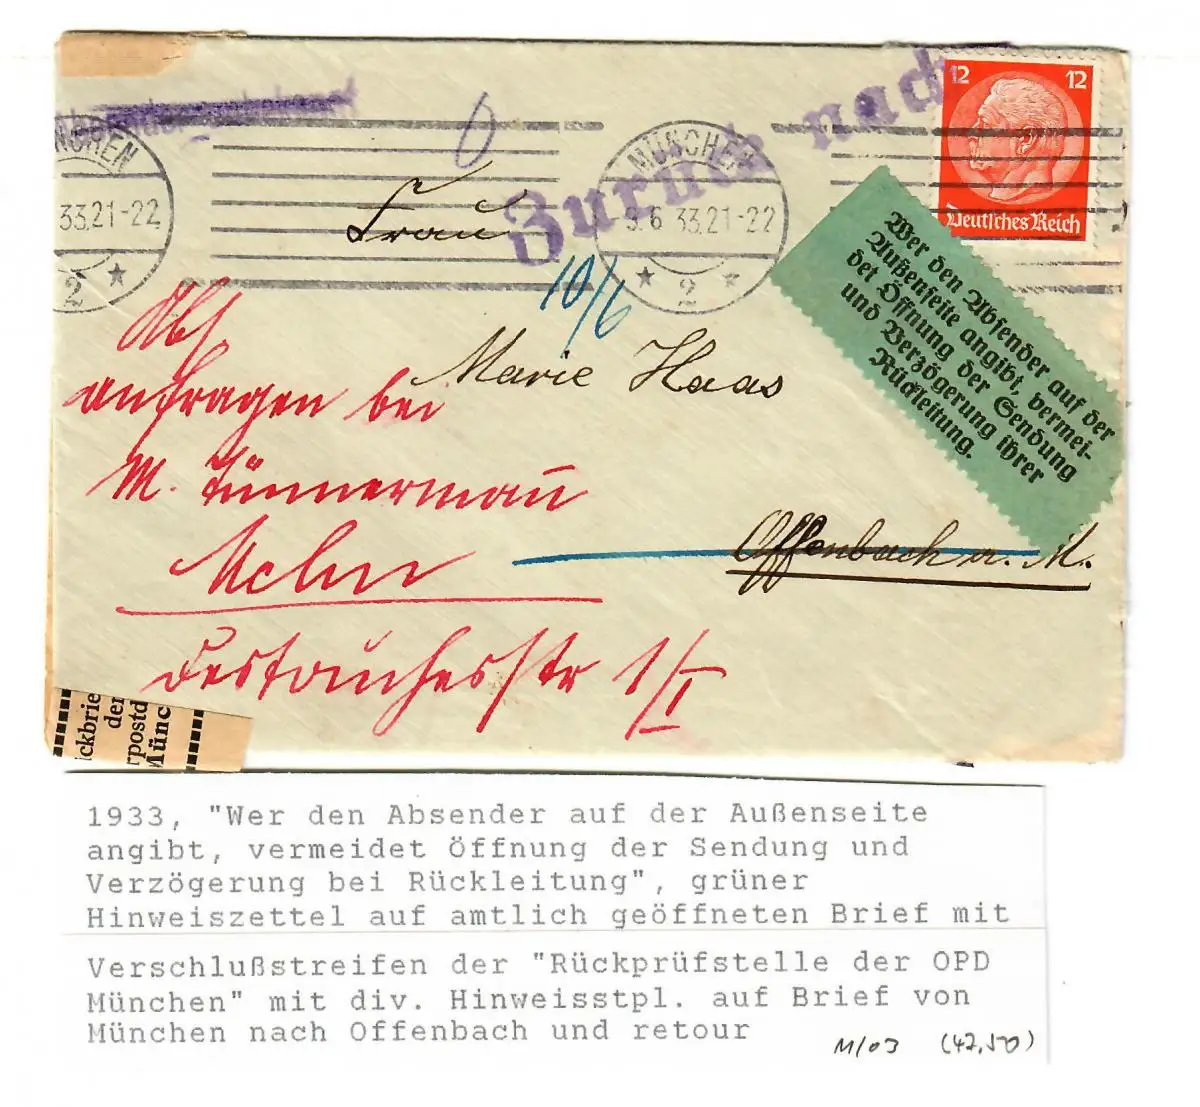 12 12
Deutsches Reich
Zurück nach
MÜNCHEN
33.21-22
2
MÜNCHEN
9.6 33.21-22
2
Frau
10/6
Marie Haas
Offenbach a. M.
Wer den Absender auf der
Außenseite angibt, vermei-
det Öffnung der Sendung
und Verzögerung ihrer
Rückleitung.
Abs
anfragen bei
M. Tünnermann
1/I
ickbrie
der
rpostd
Münc
1933, "Wer den Absender auf der Außenseite
angibt, vermeidet Öffnung der Sendung und
Verzögerung bei Rückleitung", grüner
Hinweiszettel auf amtlich geöffneten Brief mit
Verschlußstreifen der "Rückprüfstelle der OPD
München" mit div. Hinweisstpl. auf Brief von
München nach Offenbach und retour
M/03 (42,50)